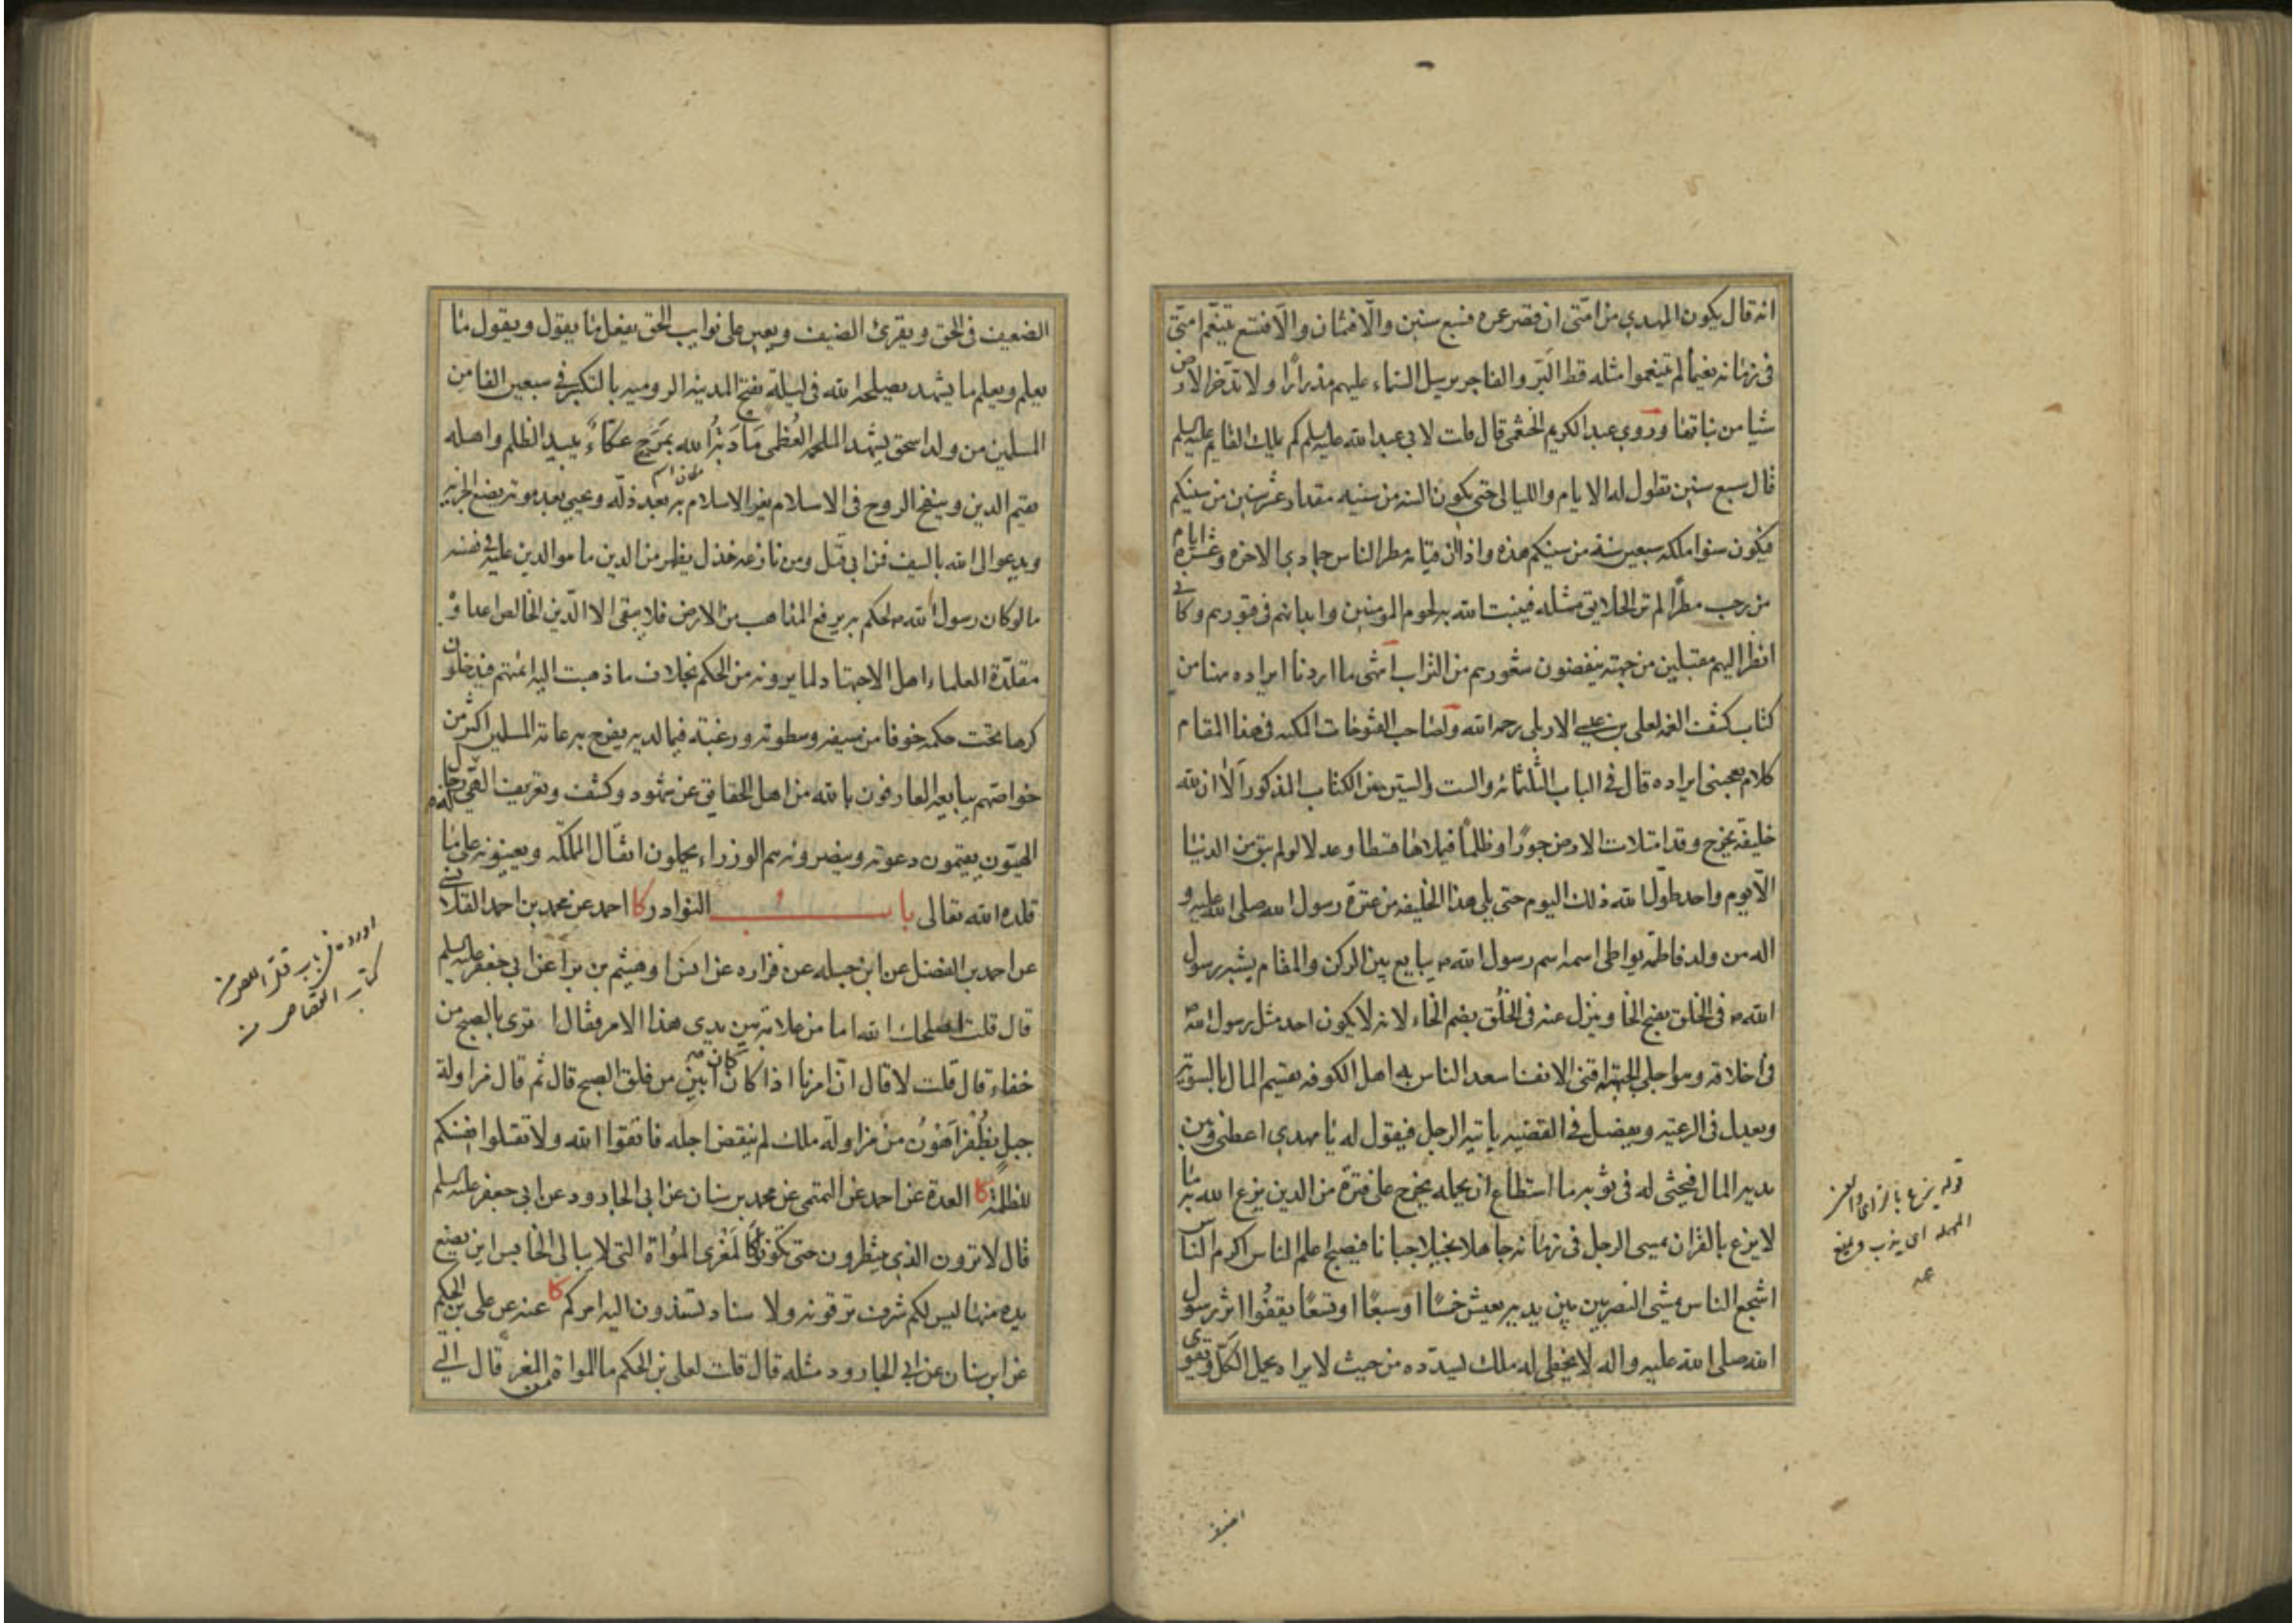 انه قال يكون المهدي من امتي ان قصر عمره فسبع سنين والا فثمان والا فتسع يتنعم امتي
في زمانه نعيما لم يتنعموا مثله قط البر والفاجر يرسل السماء عليهم مدرارا ولا تدخر الارض
شيا من نباتها وروي عبد الكريم الخثعمي قال قلت لابي عبد الله عليه السلم كم يملك القايم عليه السلم
قال سبع سنين تطول له الايام والليالي حتى يكون السنه من سنيه مقدار عشر سنين من سنيكم
فيكون سنوا ملكه سبعين سنة من سنيكم هذه واذا ان قيامه مطر الناس جمادي الاخرة وعشرة ايام
من رجب مطرا لم تر الخلايق مثله فينبت الله به لحوم المومنين وابدانهم في قبورهم وكاني
انظر اليهم مقبلين من جهته ينفضون شعورهم من التراب انتهى ما اردنا ايراده هنا من
كتاب كشف الغمه لعلي بن عيسى الاربلي رحمه الله ولصاحب الفتوحات المكيه في هذا المقام
كلام يعجبني ايراده قال في الباب الثلثمائه والست والستين من الكتاب المذكور الا ان لله
خليفة يخرج وقد امتلات الارض جورا وظلما فيملاها قسطا وعدلا لو لم يبق من الدنيا
الا يوم واحد طول الله ذلك اليوم حتى يلي هذا الخليفه من عترة رسول الله صلى الله عليه و
اله من ولد فاطمه يواطي اسمه اسم رسول الله ص يبايع بين الركن والمقام يشبه رسول
الله ص في الخلق بفتح الخا وينزل عنه في الخلق بضم الخاء لانه لا يكون احد مثل رسول الله ص
في اخلاقه وهو اجلى الجبهة اقنى الانف اسعد الناس به اهل الكوفه يقسم المال بالسويه
ويعدل في الرعيه ويفصل في القضيه ياتيه الرجل فيقول له يا مهدي اعطني وبين
يديه المال فيحثي له في ثوبه ما استطاع ان يحمله يخرج على فترة من الدين يزع الله به ما
لا يزع بالقران يمسي الرجل في زمانه جاهلا بخيلا جبانا فيصبح اعلم الناس اكرم الناس
اشجع الناس يمشي النصر بين يديه يعيش خمسا او سبعا او تسعا يقفوا اثر رسول
الله صلى الله عليه واله لا يخطي له ملك يسدده من حيث لا يراه يحمل الكل ويقوى
قوله يزع بالزاي والعين
المهمله اي
الضعيف في الحق ويقري الضيف ويعين على نوايب الحق يفعل ما يقول ويقول ما
يعلم ويعلم ما يشهد يصلحه الله في ليلة يفتح المدينه الروميه بالتكبير في سبعين الفا من
المسلمين من ولد اسحق يشهد الملحمه العظمى مادبة الله بمرج عكاء يبيد الظلم واهله
يقيم الدين وينفخ الروح في الاسلام يعز الاسلام به بعد ذله ويحيي بعد موته يضع الجزيه
ويدعو الى الله بالسيف فمن ابى قتل ومن نازعه خذل يظهر من الدين ما هو الدين عليه في نفسه
ما لو كان رسول الله ص لحكم به يرفع المذاهب من الارض فلا يبقى الا الدين الخالص اعداؤه
مقلدة العلماء اهل الاجتهاد لما يرونه من الحكم بخلاف ما ذهبت اليه ائمتهم فيدخلون
كرها تحت حكمه خوفا من سيفه وسطوته ورغبة فيما لديه يفرح به عامة المسلمين اكثر من
خواصهم يبايعه العارفون بالله من اهل الحقايق عن شهود وكشف وتعريف الهي له رجال
الهيون يقيمون دعوته وينصرونه هم الوزراء يحملون اثقال المملكه ويعينونه على ما
قلده الله تعالى باب النوادر كا احمد عن محمد بن احمد القلانسي
عن احمد بن الفضل عن ابن جبله عن فزاره عن انس او هيثم بن برا عن ابي جعفر عليه السلم
قال قلت اصلحك الله اما من علامة بين يدي هذا الامر فقال اترى بالصبح من
خفاء قال قلت لا قال ان امرنا اذا كان كان ابين من فلق الصبح قال ثم قال مزاولة
جبل بظفر اهون من مزاولة ملك لم ينقض اجله فاتقوا الله ولا تقتلوا انفسكم
للظلمة كا العدة عن احمد عن التميمي عن محمد بن سنان عن ابي الجارود عن ابي جعفر عليه السلم
قال لا ترون الذي تنتظرون حتى تكونوا كالمعزى المواة التي لا يبالي الخابس اين يضع
يده منها ليس لكم شرف ترقونه ولا سناد تسندون اليه امركم كا عنه عن علي بن الحكم
عن ابن سنان عن ابي الجارود مثله قال قلت لعلي بن الحكم ما المواة من المعز قال التي